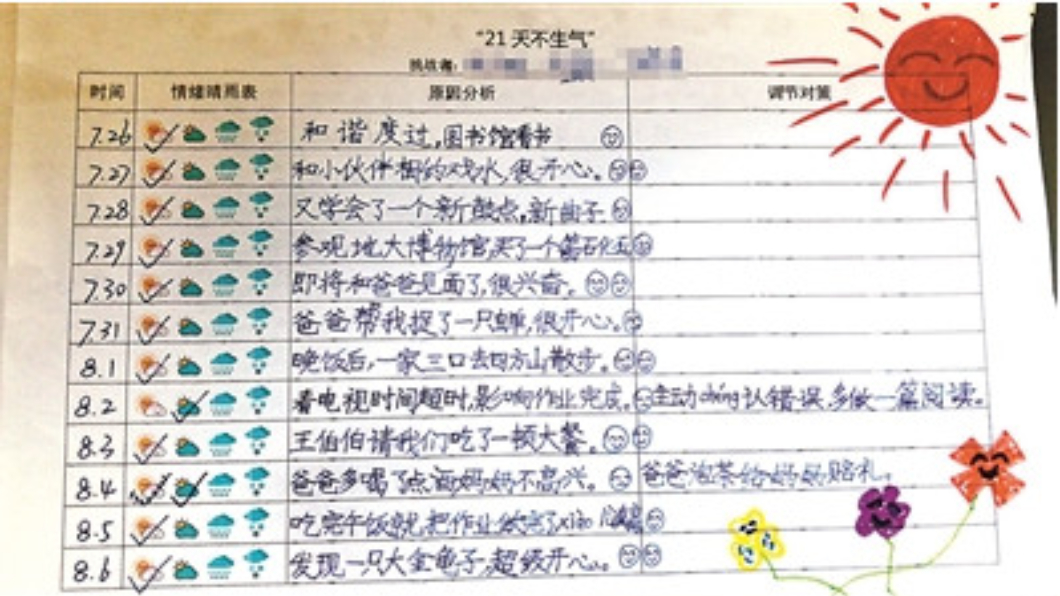 “21 天不生气”
挑战者:
时间 情绪晴雨表 原因分析 调节对策
7.26 和谐度过,图书馆看书
7.27 和小伙伴相约戏水,很开心。
7.28 又学会了一个新鼓点,新曲子
7.29 参观地大博物馆,买了一个化石
7.30 即将和爸爸见面了,很兴奋。
7.31 爸爸帮我捉了一只蝉,很开心。
8.1 晚饭后,一家三口去四方山散步。
8.2 看电视时间超时,影响作业完成。 主动chéng认错误,多做一篇阅读。
8.3 王伯伯请我们吃了一顿大餐。
8.4 爸爸多喝了点酒,妈妈不高兴。 爸爸泡茶给妈妈赔礼。
8.5 吃完午饭就把作业做完了
8.6 发现一只大金龟子,超级开心。